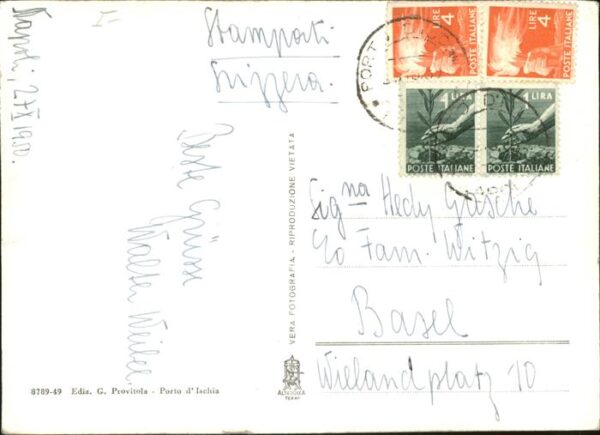 Napoli, 27 X 1950.
Stampati
Svizzera.
LIRE 4
POSTE ITALIANE
LIRE 4
POSTE ITALIANE
1 LIRA
POSTE ITALIANE
1 LIRA
POSTE ITALIANE
Beste Grüsse
Walter
Signa Hedy Gasche
c/o Fam. Witzig
Basel
Wielandplatz 10
VERA FOTOGRAFIA - RIPRODUZIONE VIETATA
8789-49 Ediz. G. Provitola - Porto d'Ischia